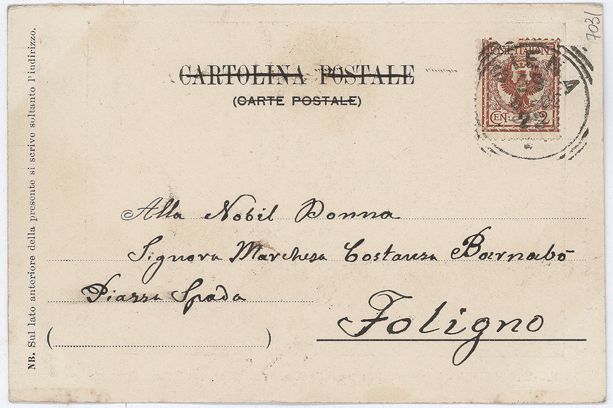 7031
CARTOLINA POSTALE
(CARTE POSTALE)
CEN 2
Alla Nobil Donna
Signora Marchesa Costanza Barnabò
Piazza Spada
Foligno
NB. Sul lato anteriore della presente si scrive soltanto l'indirizzo.